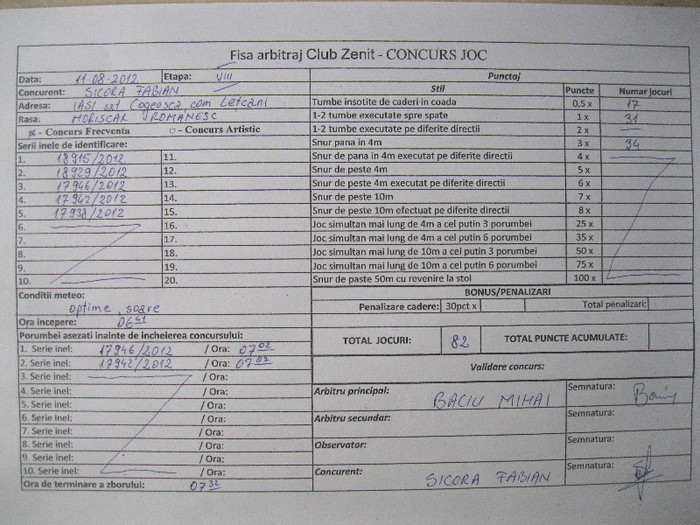 Fisa arbitraj Club Zenit - CONCURS JOC
Data: 11-08-2012 Etapa: VIII Punctaj
Concurent: SICORA FABIAN Stil Puncte Numar jocuri
Adresa: IASI sat Cogeasca, com Letcani Tumbe insotite de caderi in coada 0,5 x 17
Rasa: MORISCAR ROMANESC 1-2 tumbe executate spre spate 1 x 31
x - Concurs Frecventa □ - Concurs Artistic 1-2 tumbe executate pe diferite directii 2 x —
Serii inele de identificare: Snur pana in 4m 3 x 34
1. 18915/2012 11. Snur de pana in 4m executat pe diferite directii 4 x
2. 18929/2012 12. Snur de peste 4m 5 x
3. 17946/2012 13. Snur de peste 4m executat pe diferite directii 6 x
4. 17942/2012 14. Snur de peste 10m 7 x
5. 17938/2012 15. Snur de peste 10m efectuat pe diferite directii 8 x
6. 16. Joc simultan mai lung de 4m a cel putin 3 porumbei 25 x
7. 17. Joc simultan mai lung de 4m a cel putin 6 porumbei 35 x
8. 18. Joc simultan mai lung de 10m a cel putin 3 porumbei 50 x
9. 19. Joc simultan mai lung de 10m a cel putin 6 porumbei 75 x
10. 20. Snur de paste 50m cu revenire la stol 100 x
Conditii meteo: BONUS/PENALIZARI
optime, soare Penalizare cadere: 30pct x Total penalizari:
Ora incepere: 06 41
Porumbei asezati inainte de incheierea concursului: TOTAL JOCURI: 82 TOTAL PUNCTE ACUMULATE:
1. Serie inel: 17946/2012 / Ora: 07 02
2. Serie inel: 17942/2012 / Ora: 07 07 Validare concurs:
3. Serie inel: / Ora:
4. Serie inel: / Ora: Arbitru principal: BACIU MIHAI Semnatura:
5. Serie inel: / Ora:
6. Serie inel: / Ora: Arbitru secundar: Semnatura:
7. Serie inel: / Ora:
8. Serie inel: / Ora: Observator: Semnatura:
9. Serie inel: / Ora:
10. Serie inel: / Ora: Concurent: SICORA FABIAN Semnatura:
Ora de terminare a zborului: 07 32